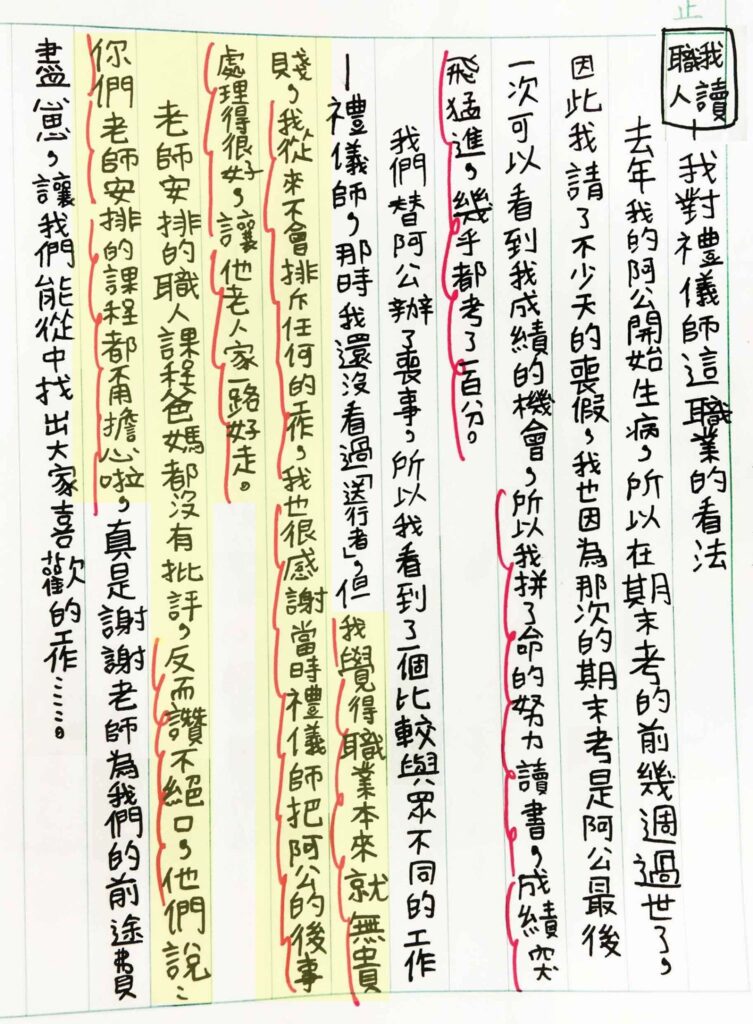 止
我讀職人-我對禮儀師這職業的看法
去年我的阿公開始生病，所以在期末考的前幾週過世了，
因此我請了不少天的喪假，我也因為那次的期末考是阿公最後
一次可以看到我成績的機會，所以我拼了命的努力讀書，成績突
飛猛進，幾乎都考了一百分。
我們替阿公辦了喪事，所以我看到了一個比較與眾不同的工作
－禮儀師，那時我還沒看過「送行者」，但我覺得職業本來就無貴
賤，我從來不會排斥任何的工作，我也很感謝當時禮儀師把阿公的後事
處理得很好，讓他老人家一路好走。
老師安排的職人課程爸媽都沒有批評，反而讚不絕口，他們說：
你們老師安排的課程都不用擔心啦，真是謝謝老師為我們的前途費
盡心思，讓我們能從中找出大家喜歡的工作……。